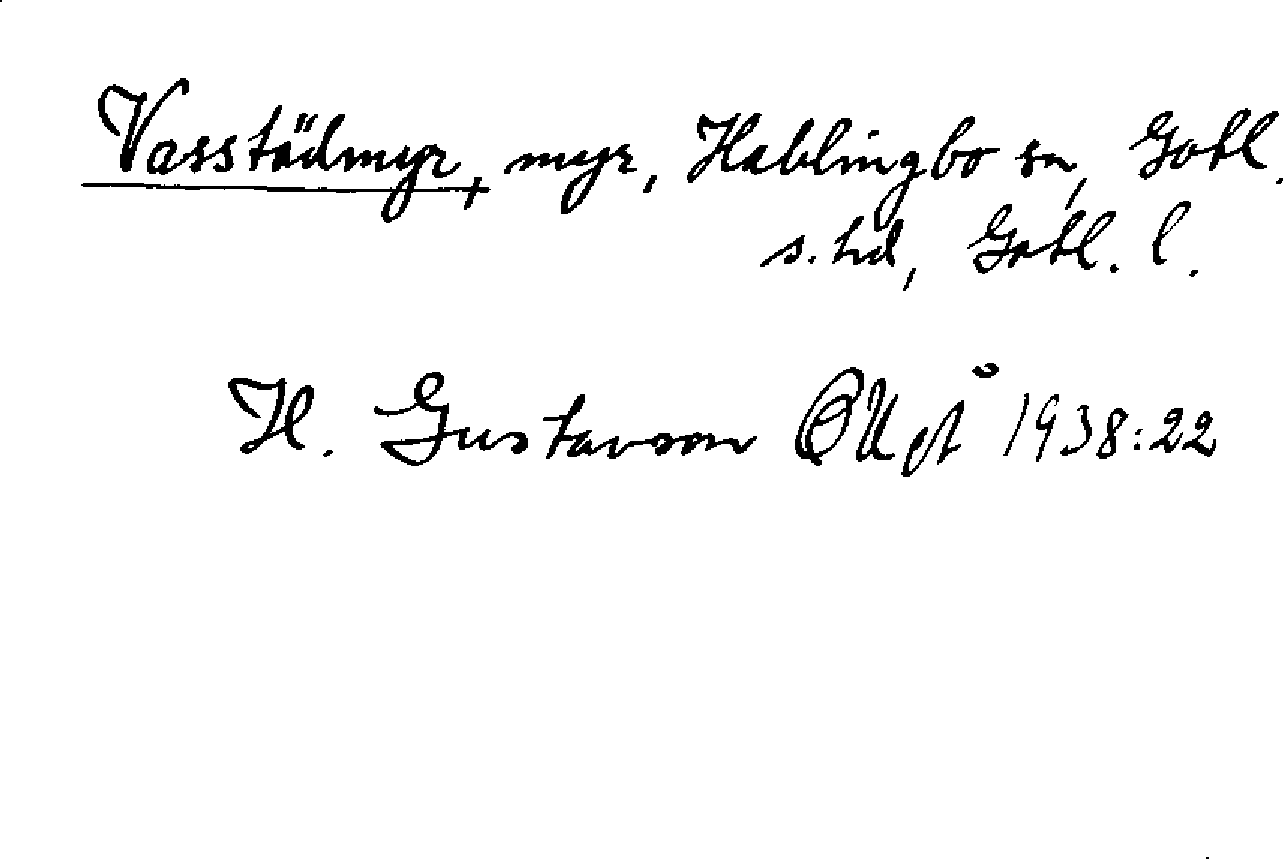 Vasstädmyr, myr, Hablingbo sn, Gotl.
s. hd, Gotl. l.
H. Gustavson 1938:22